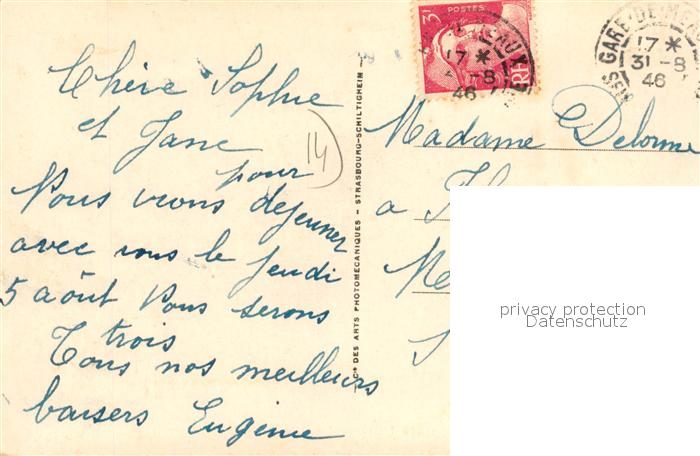 Chère Sophie
et Jane
14
pour
Nous vrons dejeuner
avec vous le jeudi
5 août Nous serons
trois
Tous nos meilleurs
baisers Eugénie
Cie DES ARTS PHOTOMECANIQUES - STRASBOURG-SCHILTIGHEIM -
3F
POSTES
17 *
-8
46
GARE DE
17 *
31-8
46
Madame Delorme
a
privacy protection
Datenschutz